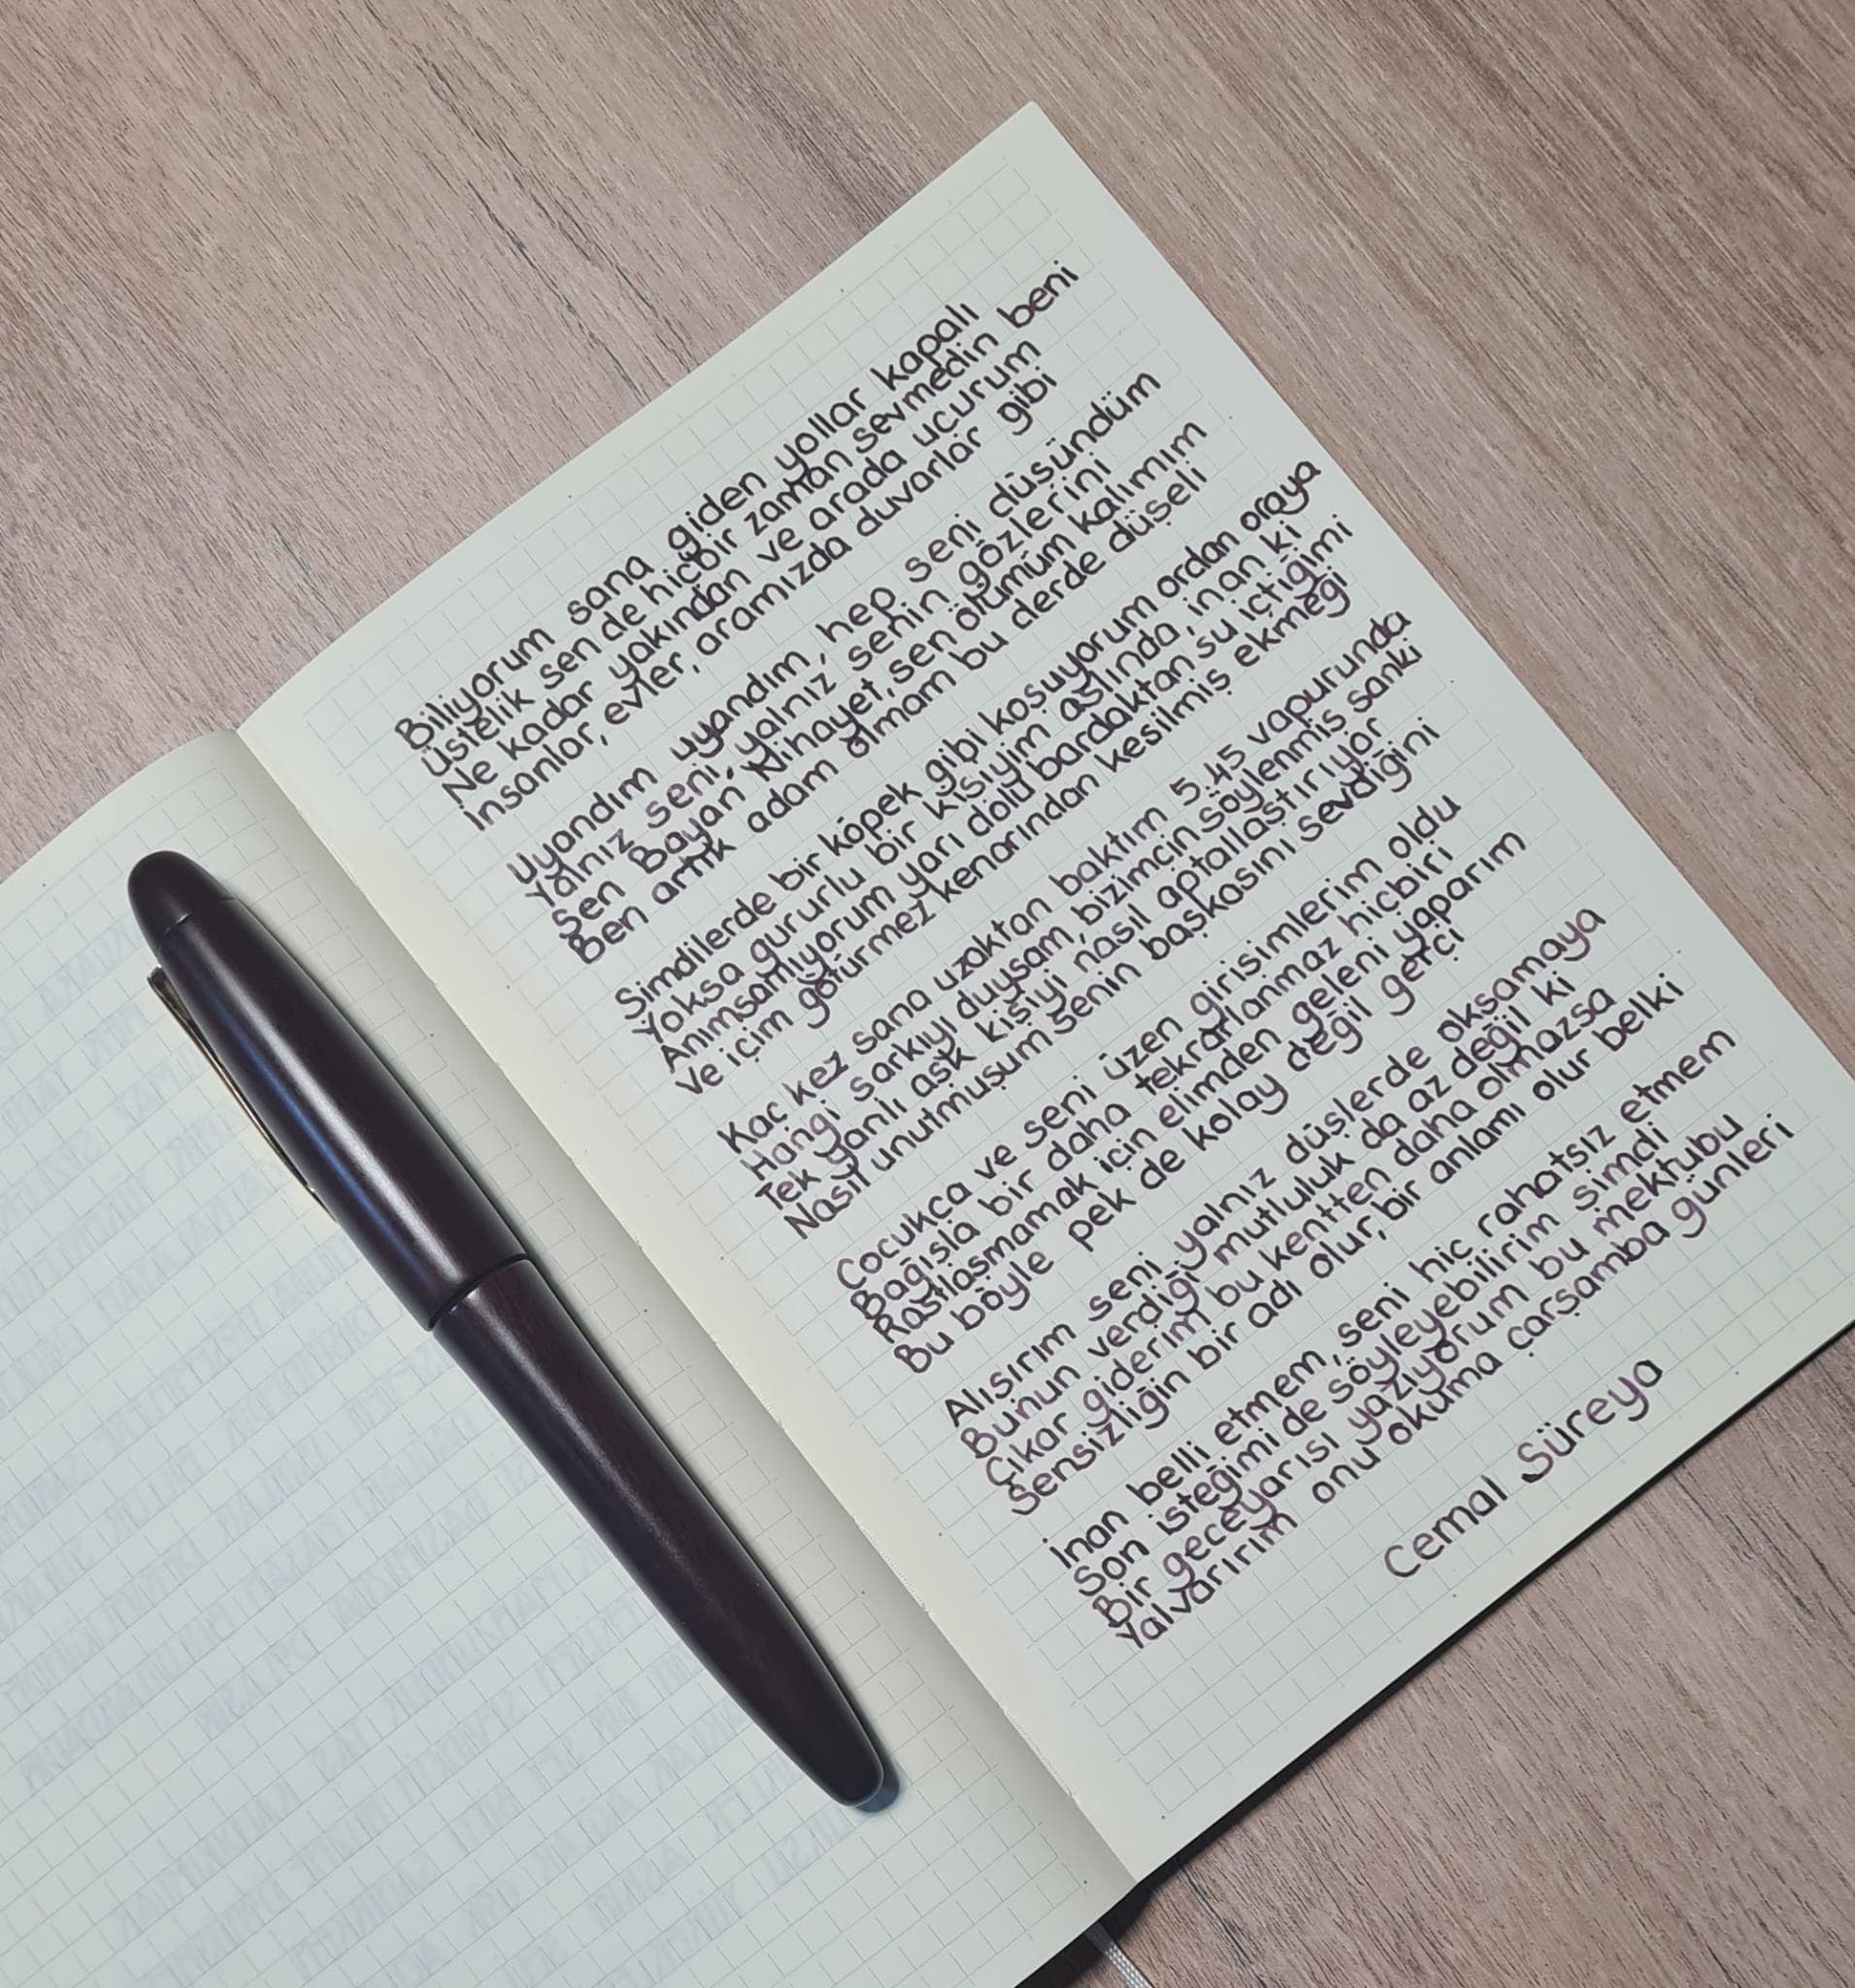 Biliyorum sana giden yollar kapalı
üstelik sen de hiçbir zaman sevmedin beni
Ne kadar yakından ve arada uçurum
İnsanlar, evler, aramızda duvarlar gibi
Uyandım uyandım, hep seni düşündüm
Yalnız seni, yalnız senin gözlerini
Sen Bayan Nihayet, sen ölümüm kalımım
Ben artık adam olmam bu derde düşeli
Şimdilerde bir köpek gibi koşuyorum ordan oraya
Yoksa gururlu bir kişiyim aslında, inan ki
Anımsamıyorum yarı dolu bardaktan su içtiğimi
Ve içim götürmez kenarından kesilmiş ekmeği
Kaç kez sana uzaktan baktım 5.45 vapurunda
Hangi şarkıyı duysam, bizimçin söylenmiş sanki
Tek yanlı aşk kişiyi nasıl aptallaştırıyor
Nasıl unutmuşum senin başkasını sevdiğini
Çocukça ve seni üzen girişimlerim oldu
Bağışla bir daha tekrarlanmaz hiçbiri
Rastlaşmamak için elimden geleni yaparım
Bu böyle pek de kolay değil gerçi
Alışırım seni yalnız düşlerde okşamaya
Bunun verdiği mutluluk da az değil ki
Çıkar giderim bu kentten daha olmazsa
Sensizliğin bir adı olur, bir anlamı olur belki
İnan belli etmem, seni hiç rahatsız etmem
Son isteğimi de söyleyebilirim şimdi
Bir geceyarısı yazıyorum bu mektubu
Yalvarırım onu okuma çarşamba günleri
Cemal Süreya